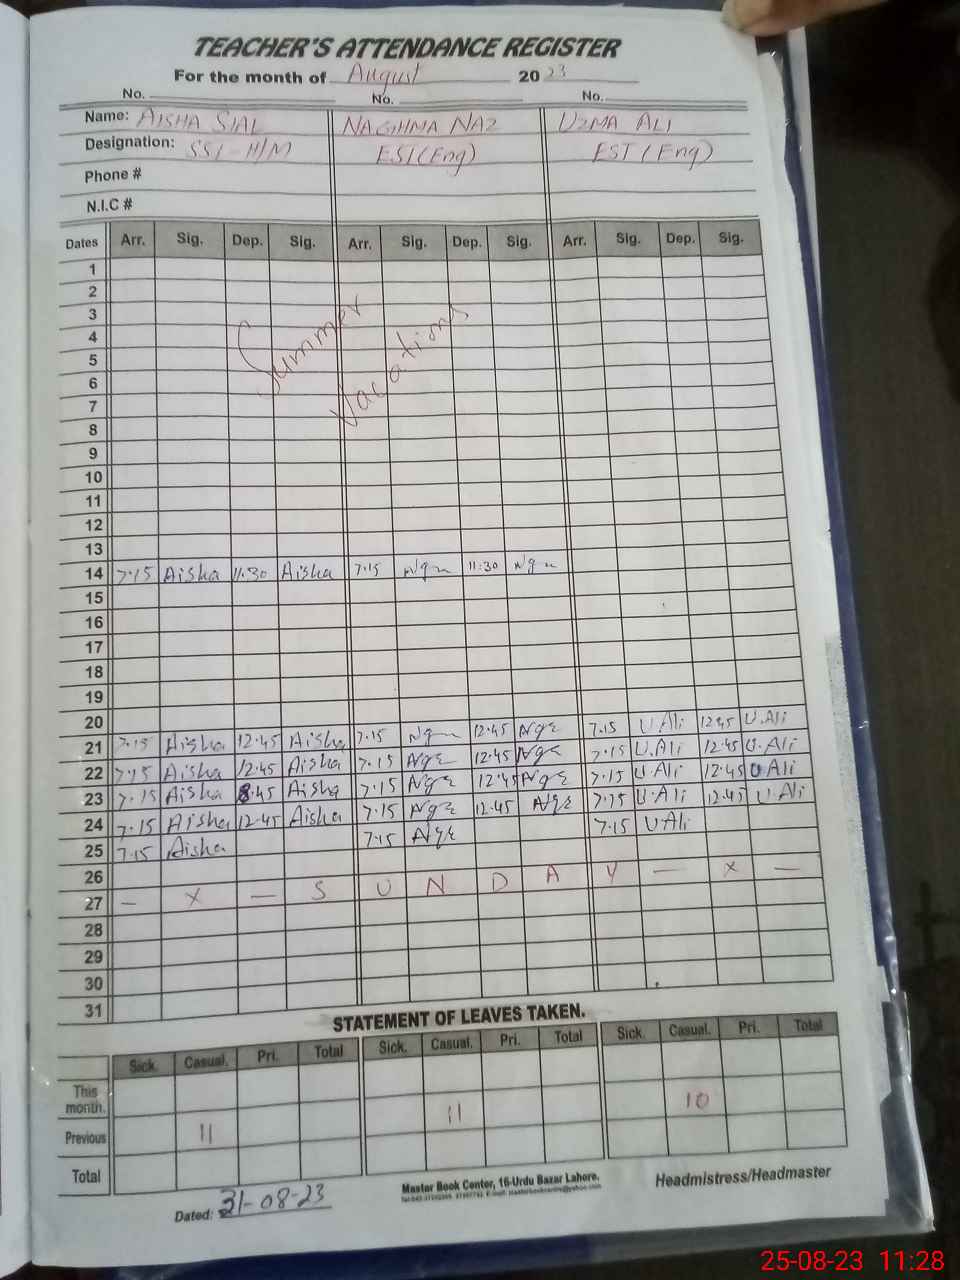 TEACHER'S ATTENDANCE REGISTER
For the month of August 2023
No. No. No.
Name: AISHA SIAL NAGHMA NAZ UZMA ALI
Designation: SST-H/M EST(Eng) EST(Eng)
Phone #
N.I.C #
Dates Arr. Sig. Dep. Sig. Arr. Sig. Dep. Sig. Arr. Sig. Dep. Sig.
1
2
3
4
5
6
7
8
9
10
11
12
13
Summer
Vacations
14 7.15 Aisha 11.30 Aisha 7.15 11:30
15
16
17
18
19
20
21 7.15 Aisha 12.45 Aisha 7.15 12.45 7.15 U.Ali 12.45 U.Ali
22 7.15 Aisha 12.45 Aisha 7.15 12.45 7.15 U.Ali 12.45 U.Ali
23 7.15 Aisha 8.45 Aisha 7.15 12.45 7.15 U.Ali 12.45 U.Ali
24 7.15 Aisha 12.45 Aisha 7.15 12.45 7.15 U.Ali 12.45 U.Ali
25 7.15 Aisha 7.15 7.15 U.Ali
26
27 — x — S U N D A Y — x —
28
29
30
31
STATEMENT OF LEAVES TAKEN.
Sick. Casual. Pri. Total Sick. Casual. Pri. Total Sick. Casual. Pri. Total
This
month.
Previous 11 11 10
Total
Dated: 31-08-23
Master Book Center, 16-Urdu Bazar Lahore.
Headmistress/Headmaster
25-08-23 11:28